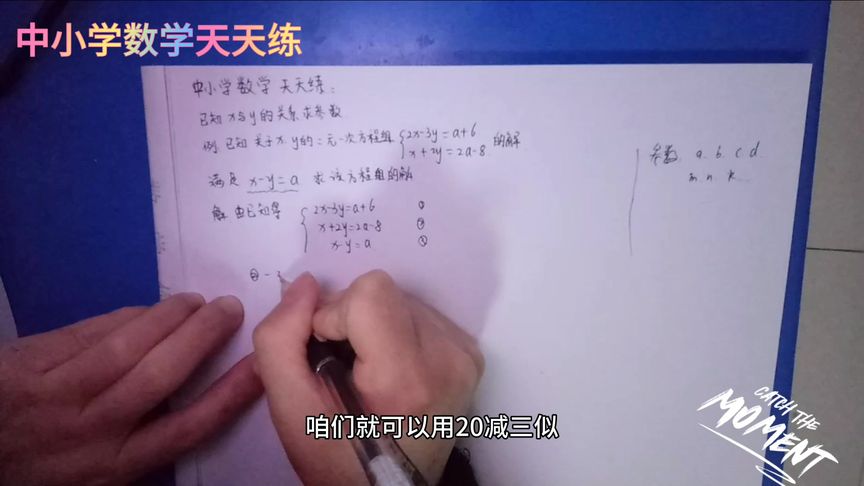 中小学数学天天练
中小学数学天天练：
已知x与y的关系求参数
例.已知关于x.y的二元一次方程组{2x-3y=a+6 的解
x+2y=2a-8
满足 x-y=a 求该方程组的解
参数 a.b.c d.
m.n.k
解 由已知得 {2x-3y=a+6 ①
x+2y=2a-8 ②
x-y=a ③
②-
咱们就可以用20减三似
CATCH THE
MOMENT